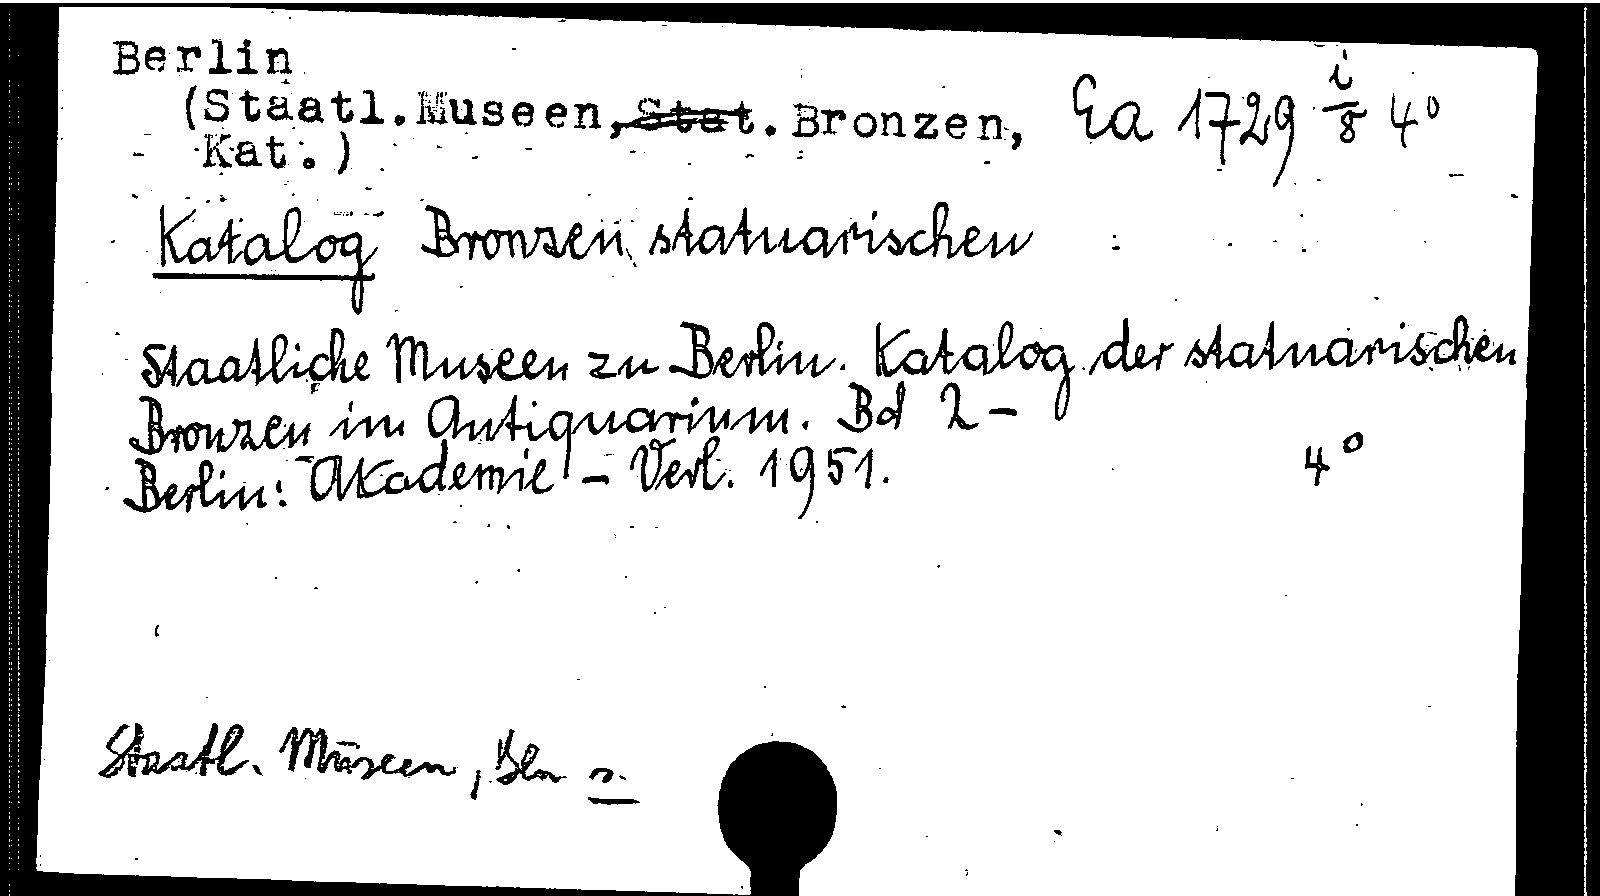 Berlin
(Staatl.Museen, Stat. Bronzen, Ea 1729 i/8 4°
Kat.)
Katalog Bronzen statuarischen
Staatliche Museen zu Berlin. Katalog der statuarischen
Bronzen im Antiquarium. Bd 2 -
Berlin: Akademie - Verl. 1951. 4°
Staatl. Museen, Bln